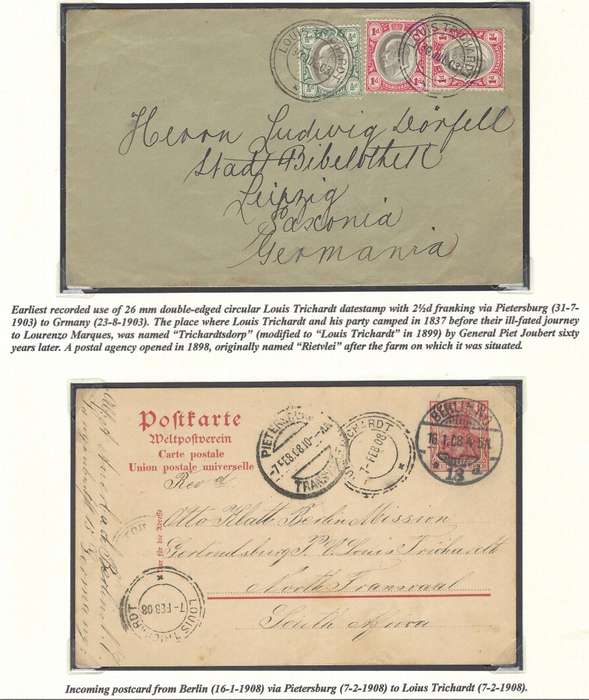 LOUIS TRICHARDT
30 JUL 03
LOUIS TRICHARDT
30 JUL 03
½d
½d
1d
1d
1d
1d
Herrn Ludwig Dörfell
Stadt Bibelothek
Leipzig
Saxonia
Germania
Earliest recorded use of 26 mm double-edged circular Louis Trichardt datestamp with 2½d franking via Pietersburg (31-7-
1903) to Grmany (23-8-1903). The place where Louis Trichardt and his party camped in 1837 before their ill-fated journey
to Lourenzo Marques, was named “Trichardtsdorp” (modified to “Louis Trichardt” in 1899) by General Piet Joubert sixty
years later. A postal agency opened in 1898, originally named “Rietvlei” after the farm on which it was situated.
Postkarte
Weltpostverein
Carte postale
Union postale universelle
PIETERSBURG
7-FEB.08
TRANSVAAL
TRICHARDT
7-FEB 08
BERLIN
16.1.08.4-5N.
13
Rev d
Otto Klatt Berlin Mission
Louis Trichardt
North Transvaal
South Africa
LOUIS TRICHARDT
7-FEB 08
Incoming postcard from Berlin (16-1-1908) via Pietersburg (7-2-1908) to Loius Trichardt (7-2-1908).